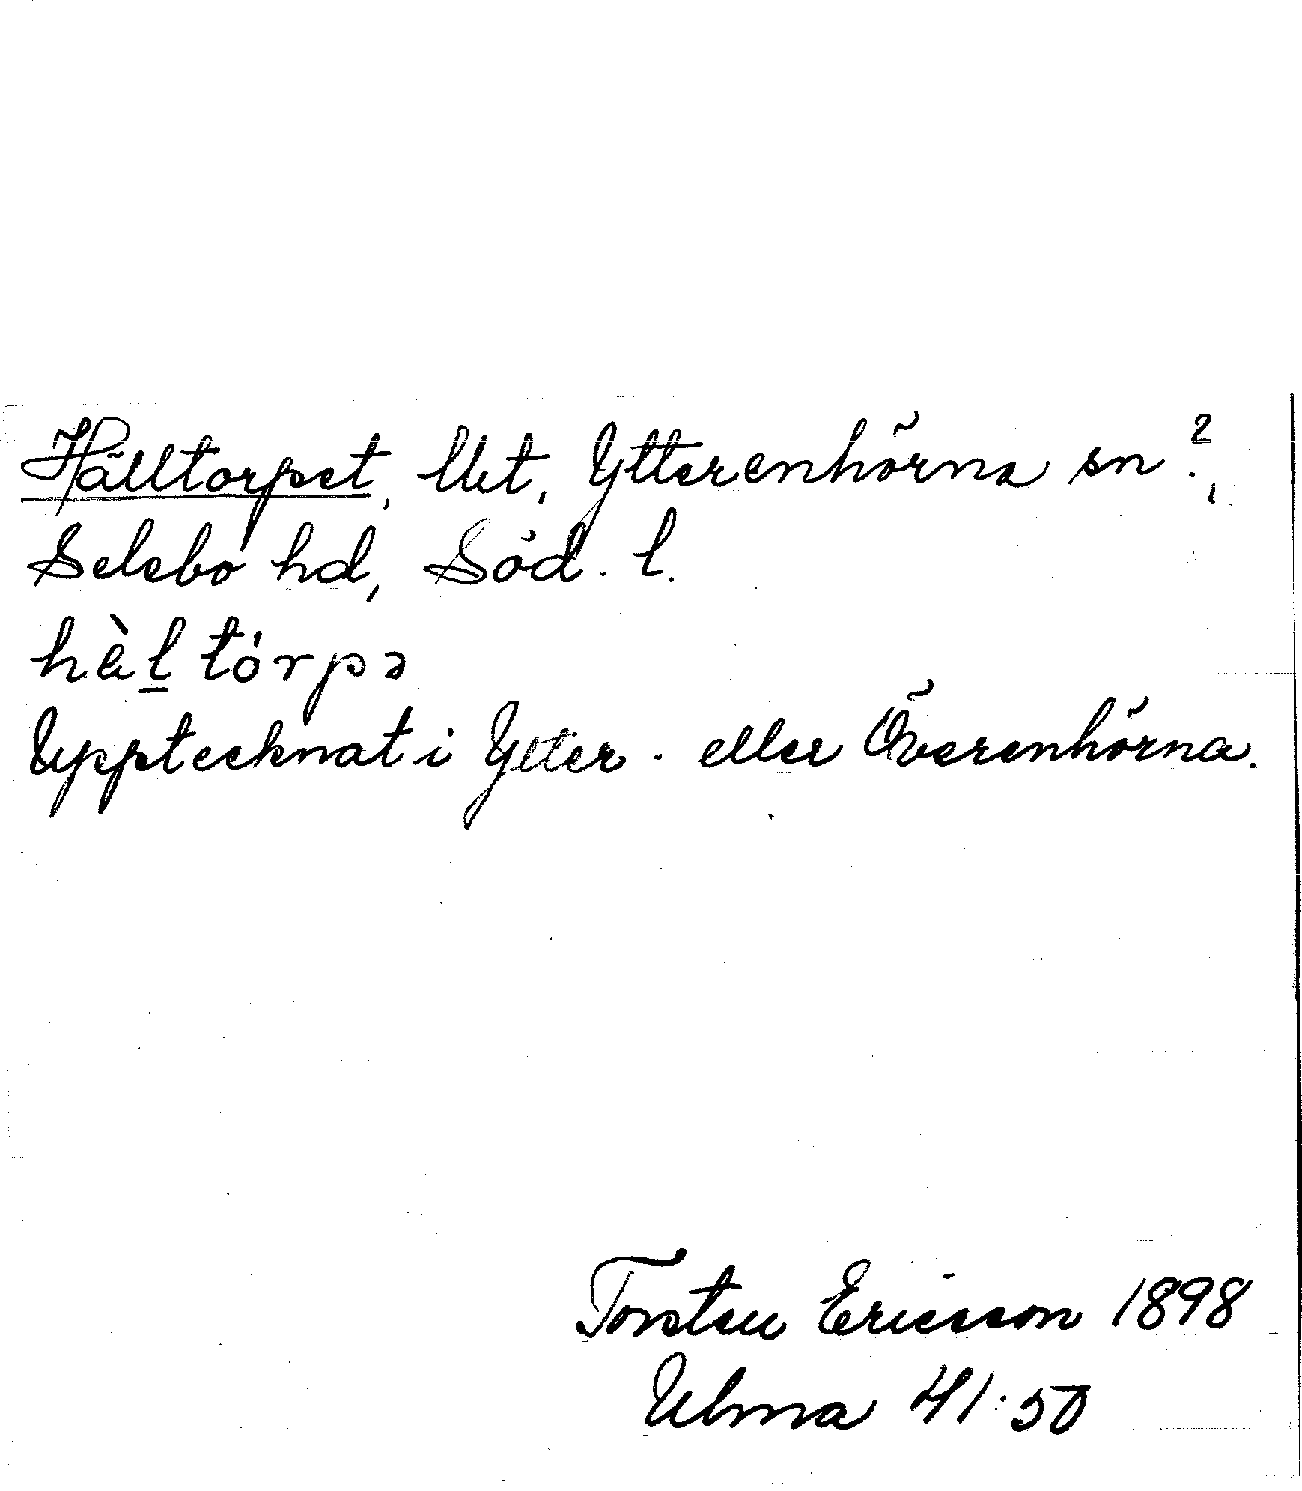 Hälltorpet, Ubt, Ytterenhörna sn?,
Selebo hd, Söd. l.
hä̀l tórpə
Upptecknat i Ytter- eller Överenhörna.
Torsten Ericsson 1898
Ulma 41:50